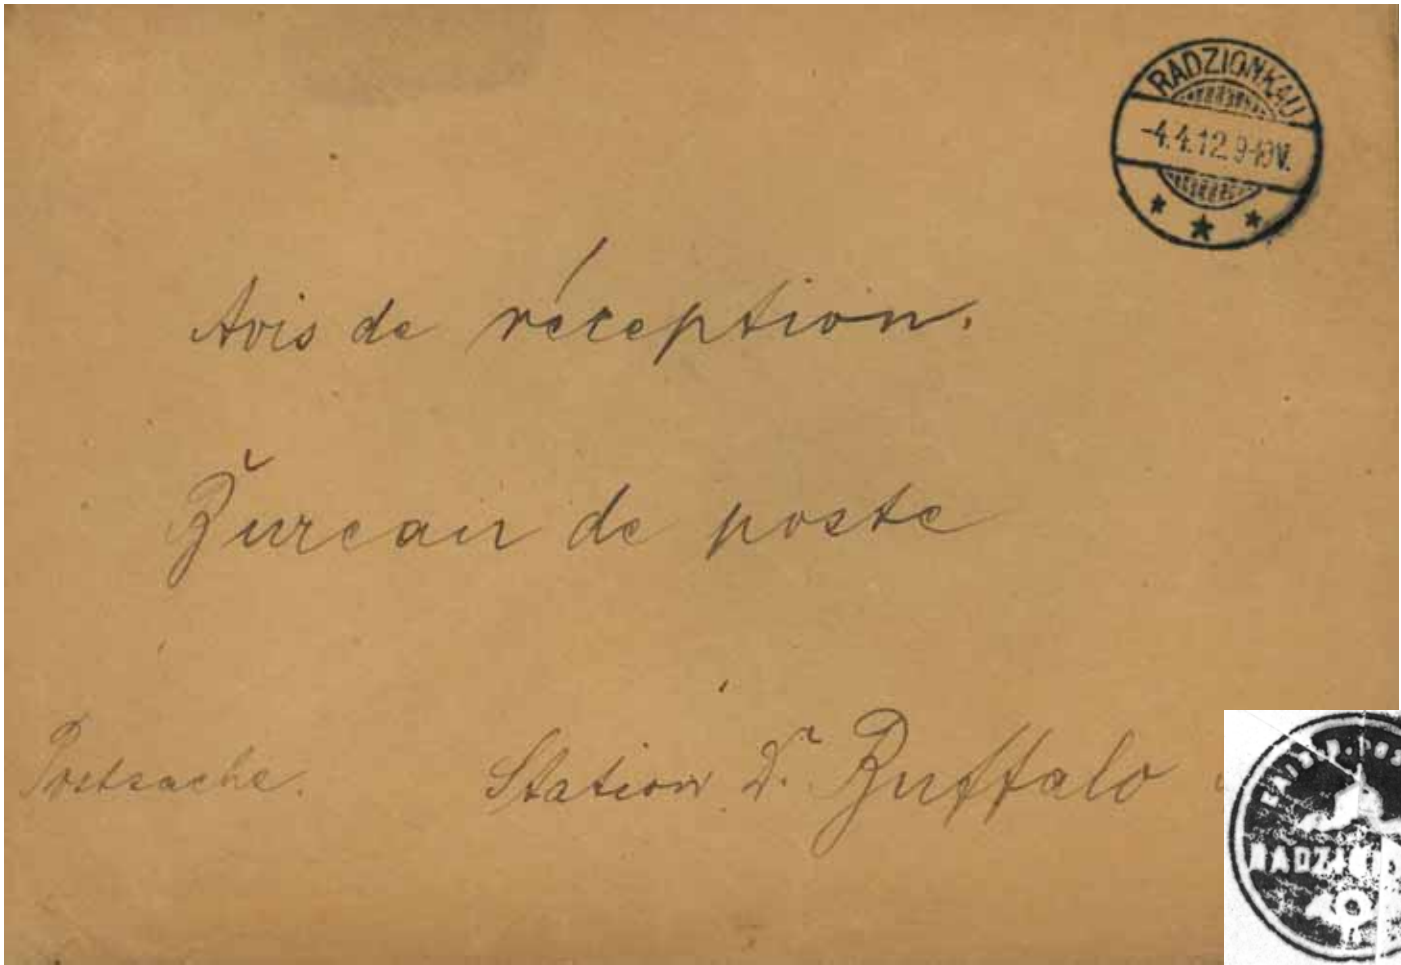 RADZIONKAU
-4.4.12.9-10V.
Avis de réception.
Bureau de poste
Postsache. Station D. Buffalo